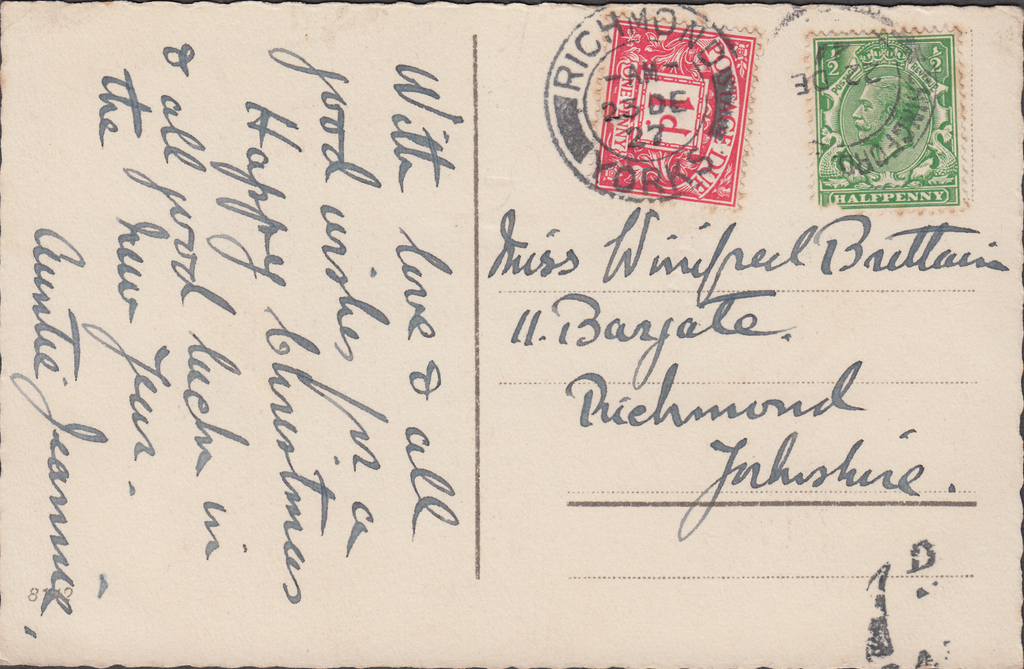 With love & all
good wishes for a
Happy Christmas
& all good luck in
the New Year.
Auntie Jeannie,
8112
RICHMOND
- AM -
23 DE
27
YORKS
POSTAGE DUE
1d
ONE PENNY
½ ½
HALFPENNY
Miss Winifred Brittain
11. Bargate.
Richmond
Yorkshire.
1 D